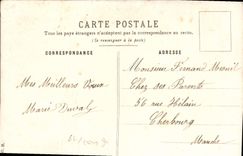 CARTE POSTALE
Tous les pays étrangers n'acceptent pas la correspondance au verso.
(se renseigner à la poste)
CORRESPONDANCE
ADRESSE
Mes Meilleurs Vœux
Marie Duval
Monsieur Fernand Mesnil
Chez ses Parents
56 rue Hélain
Cherbourg
Manche